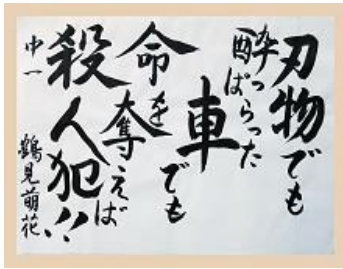 刃物でも
酔っぱらった
車でも
命を
奪えば
殺人犯!!
中一 鶴見萌花